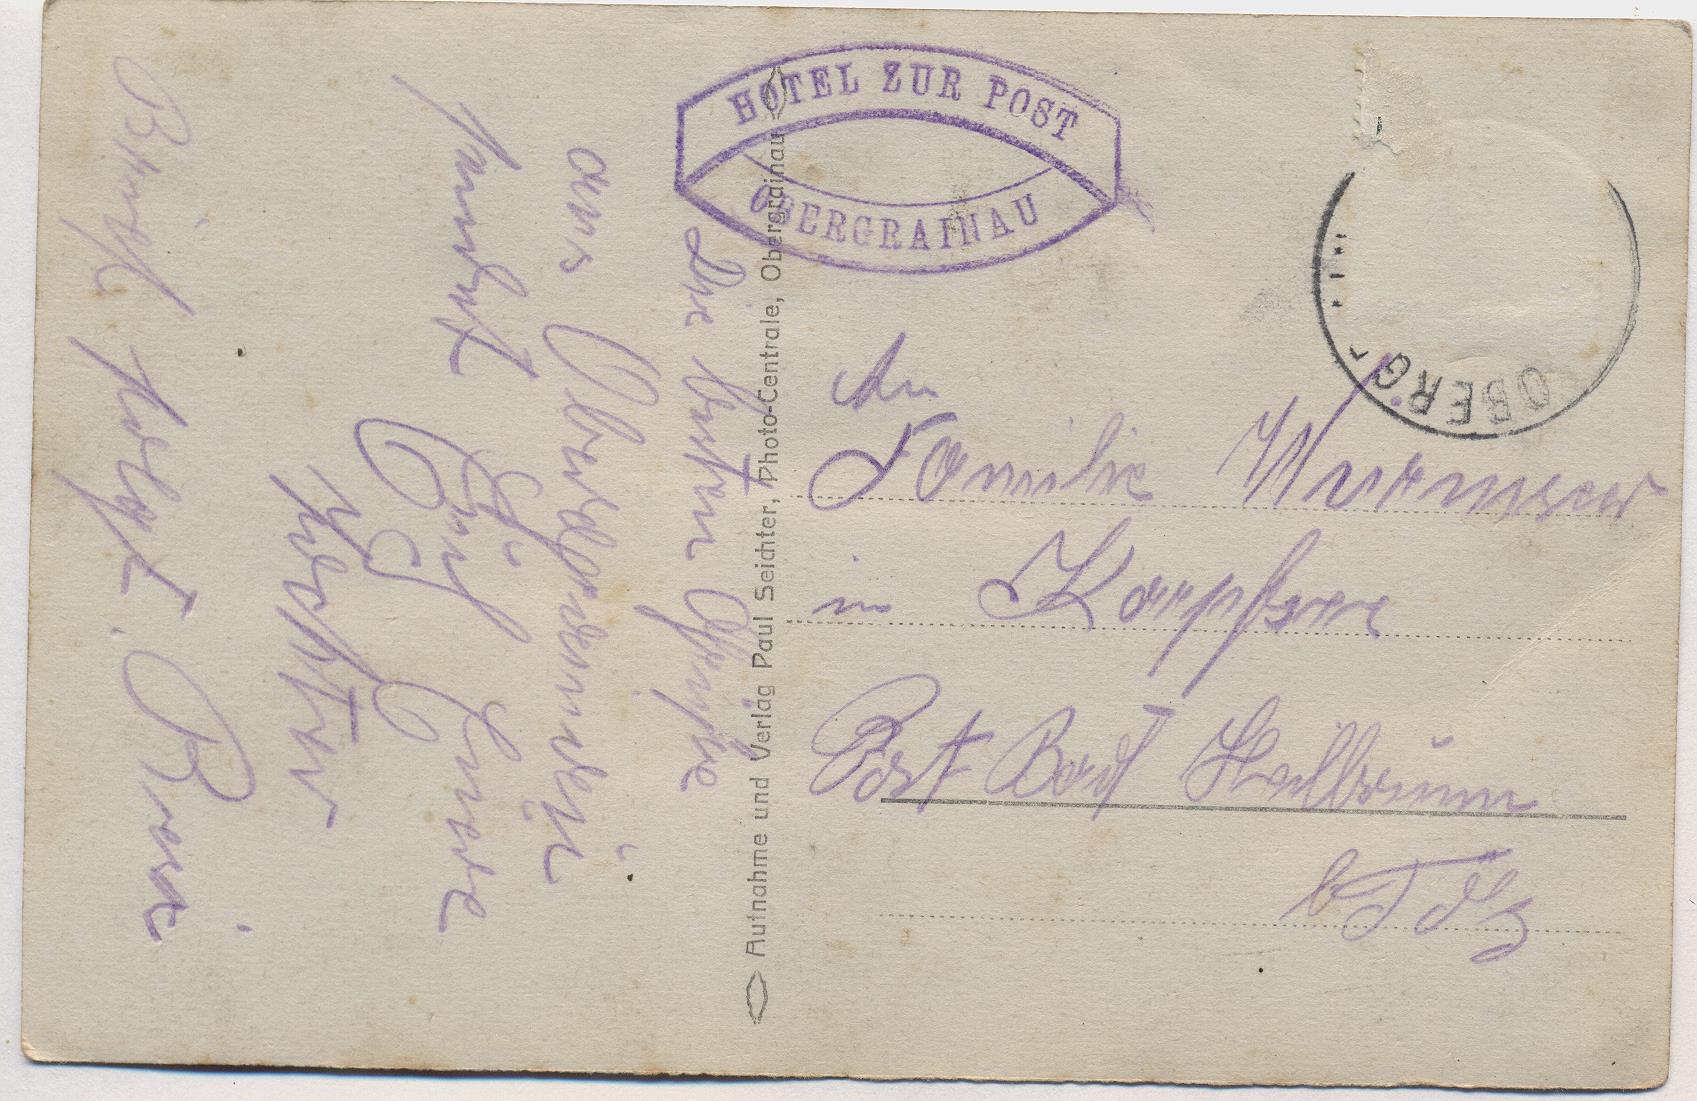 HOTEL ZUR POST
OBERGRAINAU
OBERG
Die besten Grüße
aus Obergrainau
sendet Euch Eure
Schwester
Brief folgt.
Aufnahme und Verlag Paul Seichter, Photo-Centrale, Obergrainau
An
Familie Wurmser
in Karpfsee
Post Bad Heilbrunn
b Tölz